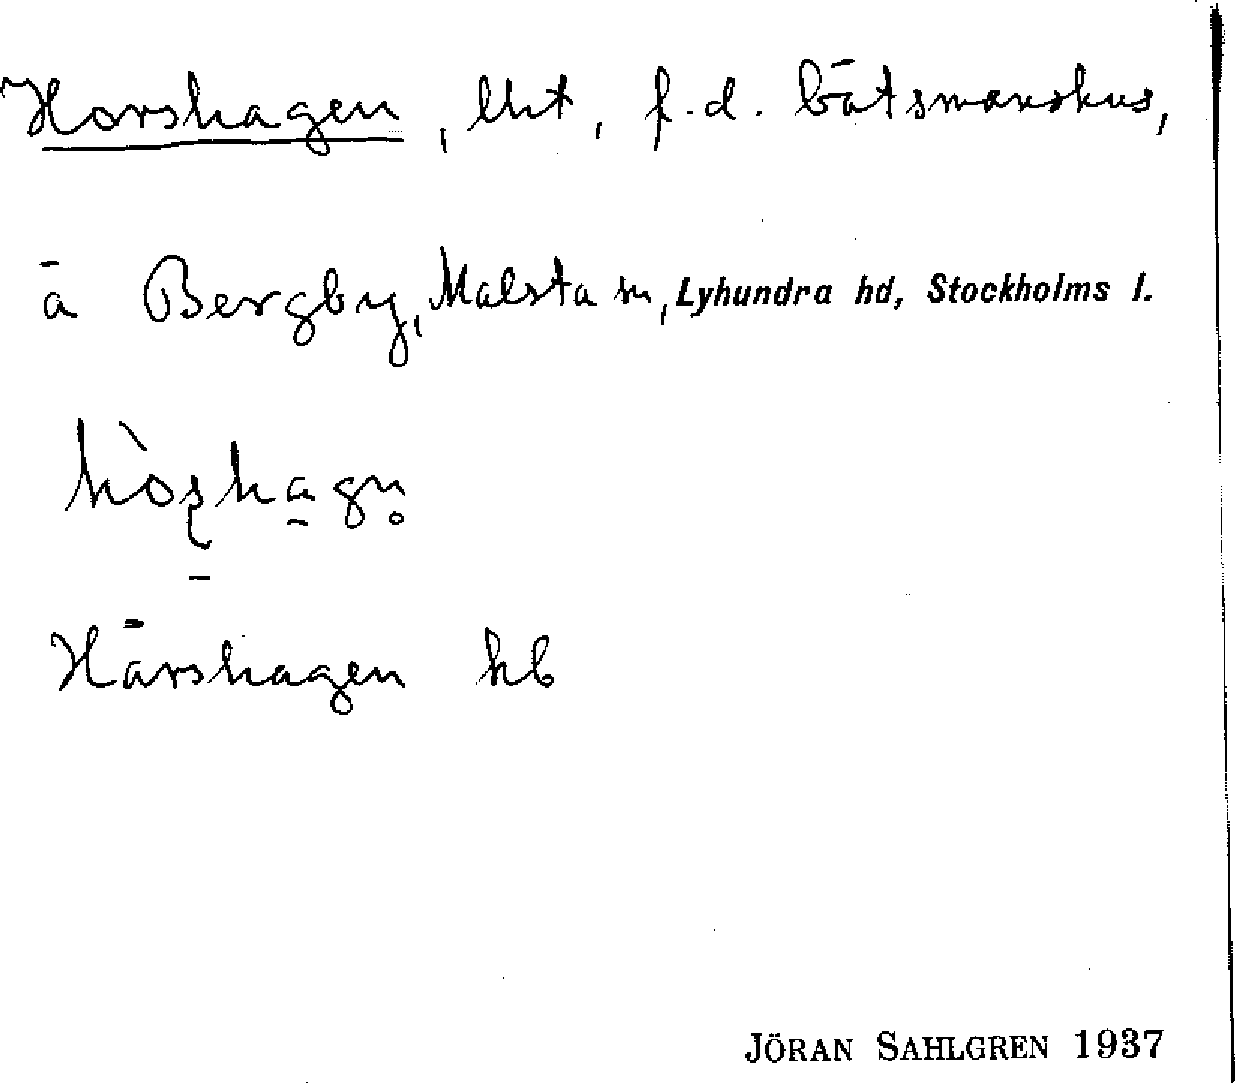 Horshagen, lht, f.d. båtsmanshus,
å Bergby, Malsta sn, Lyhundra hd, Stockholms l.
hòʂha̱gn̥
Hårshagen hb
JÖRAN SAHLGREN 1937